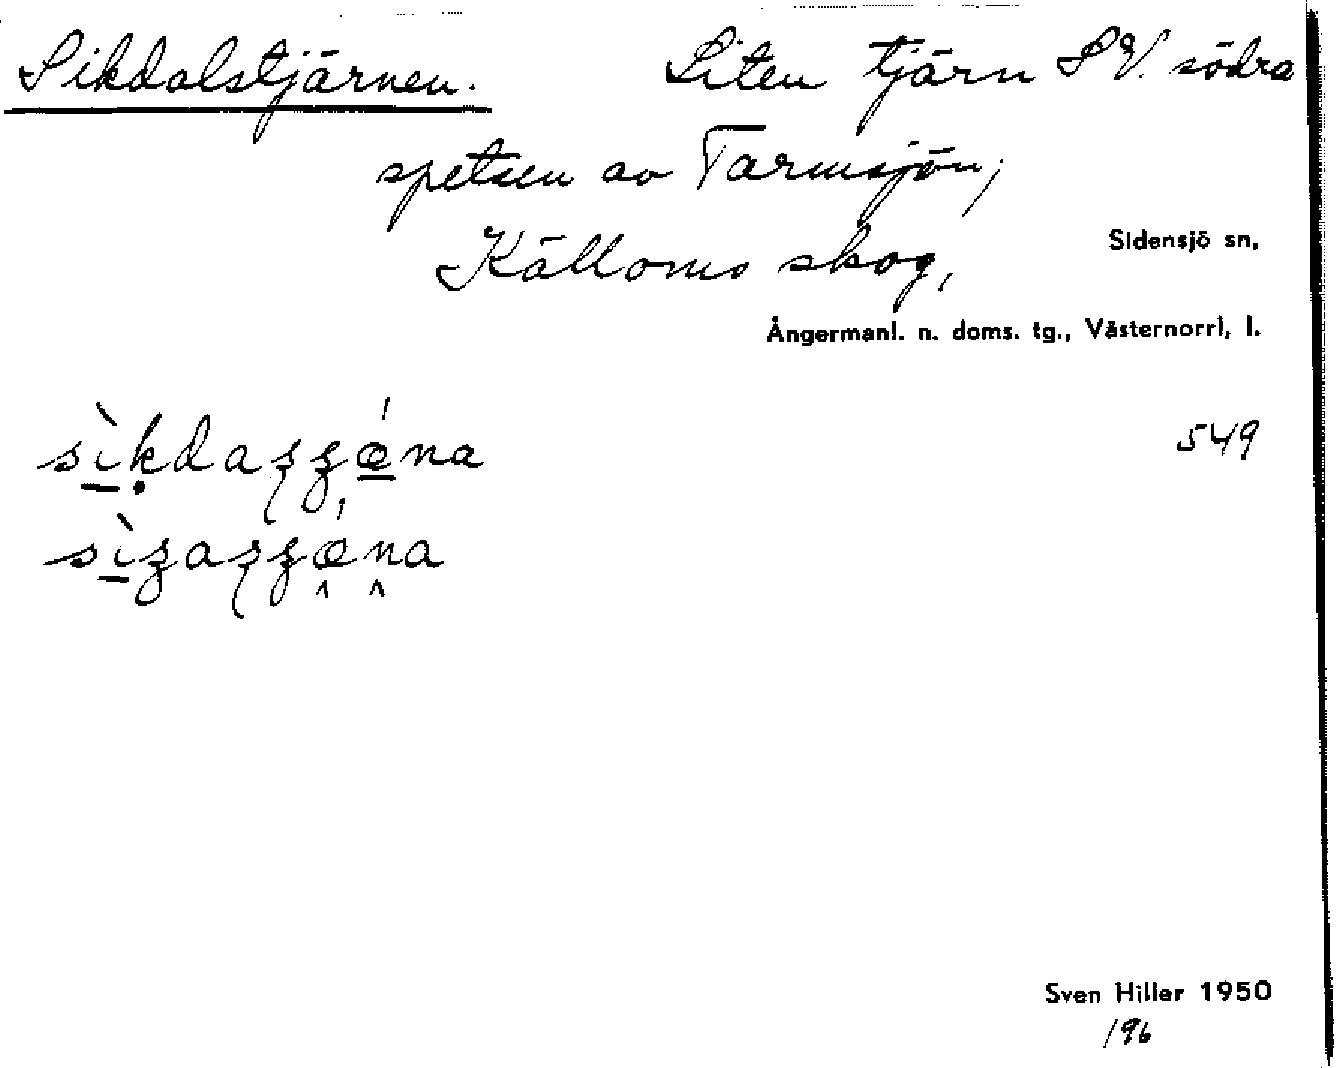 Sikdalstjärnen. Liten tjärn SV. södra
spetsen av Tarmsjön,
Källoms skog,
Sidensjö sn,
Ångermanl. n. doms. tg., Västernorrl, l.
549
Sven Hiller 1950
/96